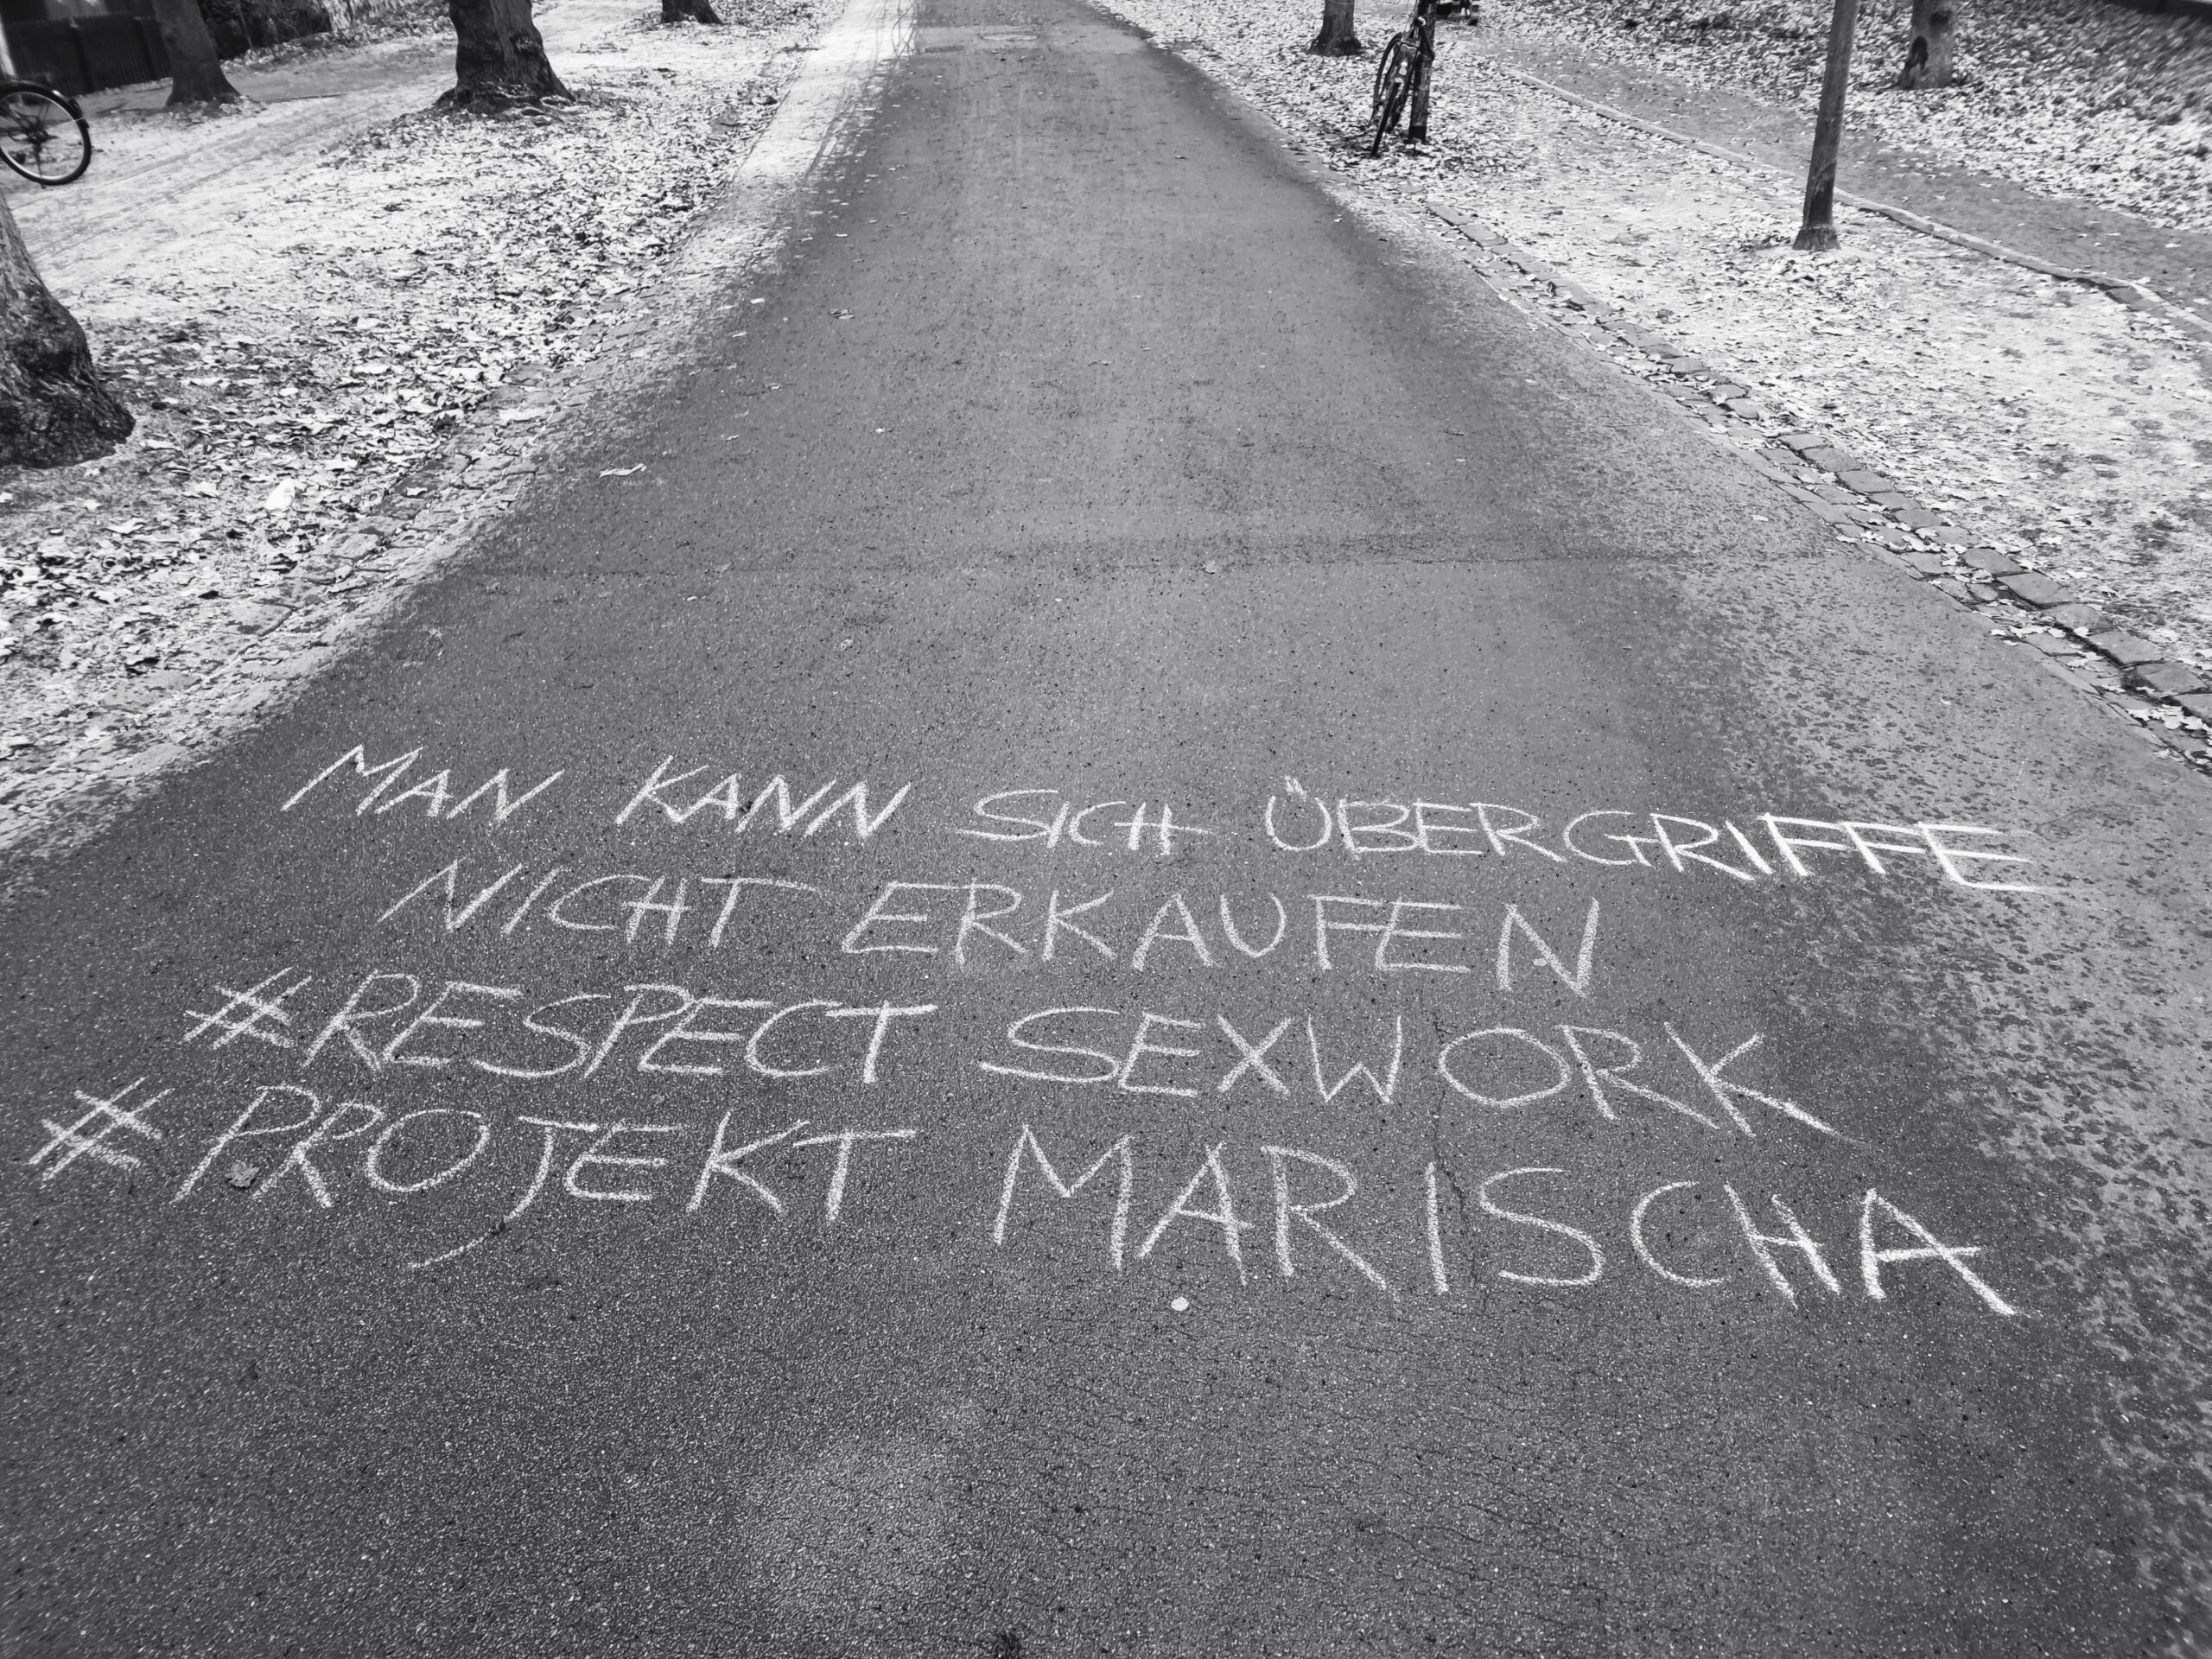 MAN KANN SICH ÜBERGRIFFE
NICHT ERKAUFEN
#RESPECT SEXWORK
#PROJEKT MARISCHA